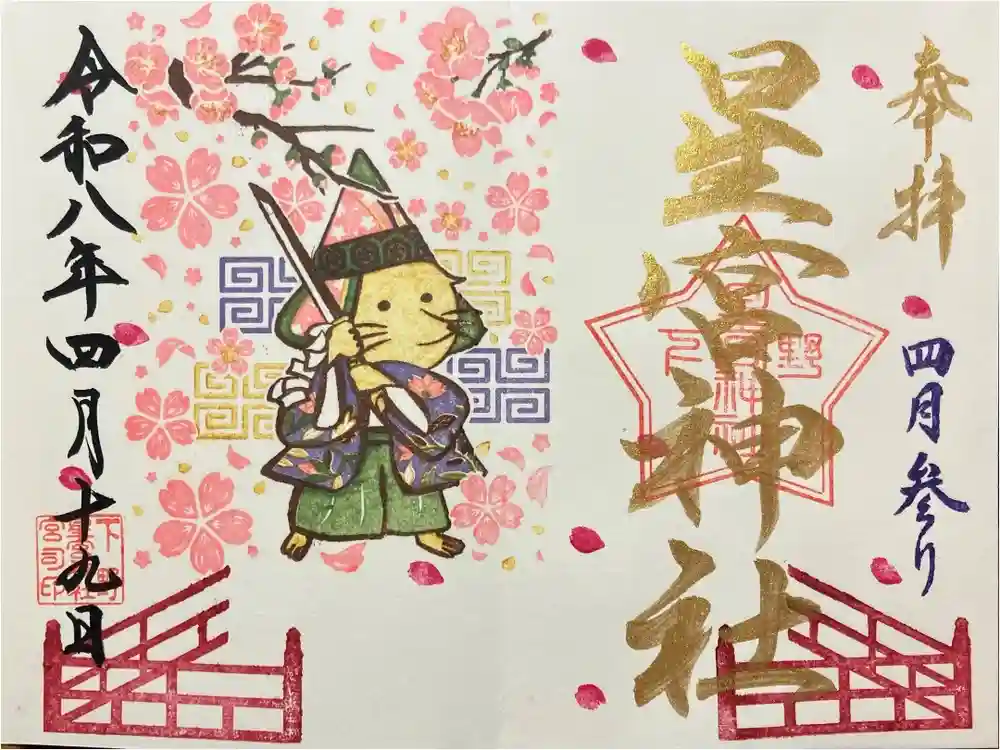 奉拝
四月参り
星宮神社
令和八年四月十九日
下野
星宮神社
宮司印